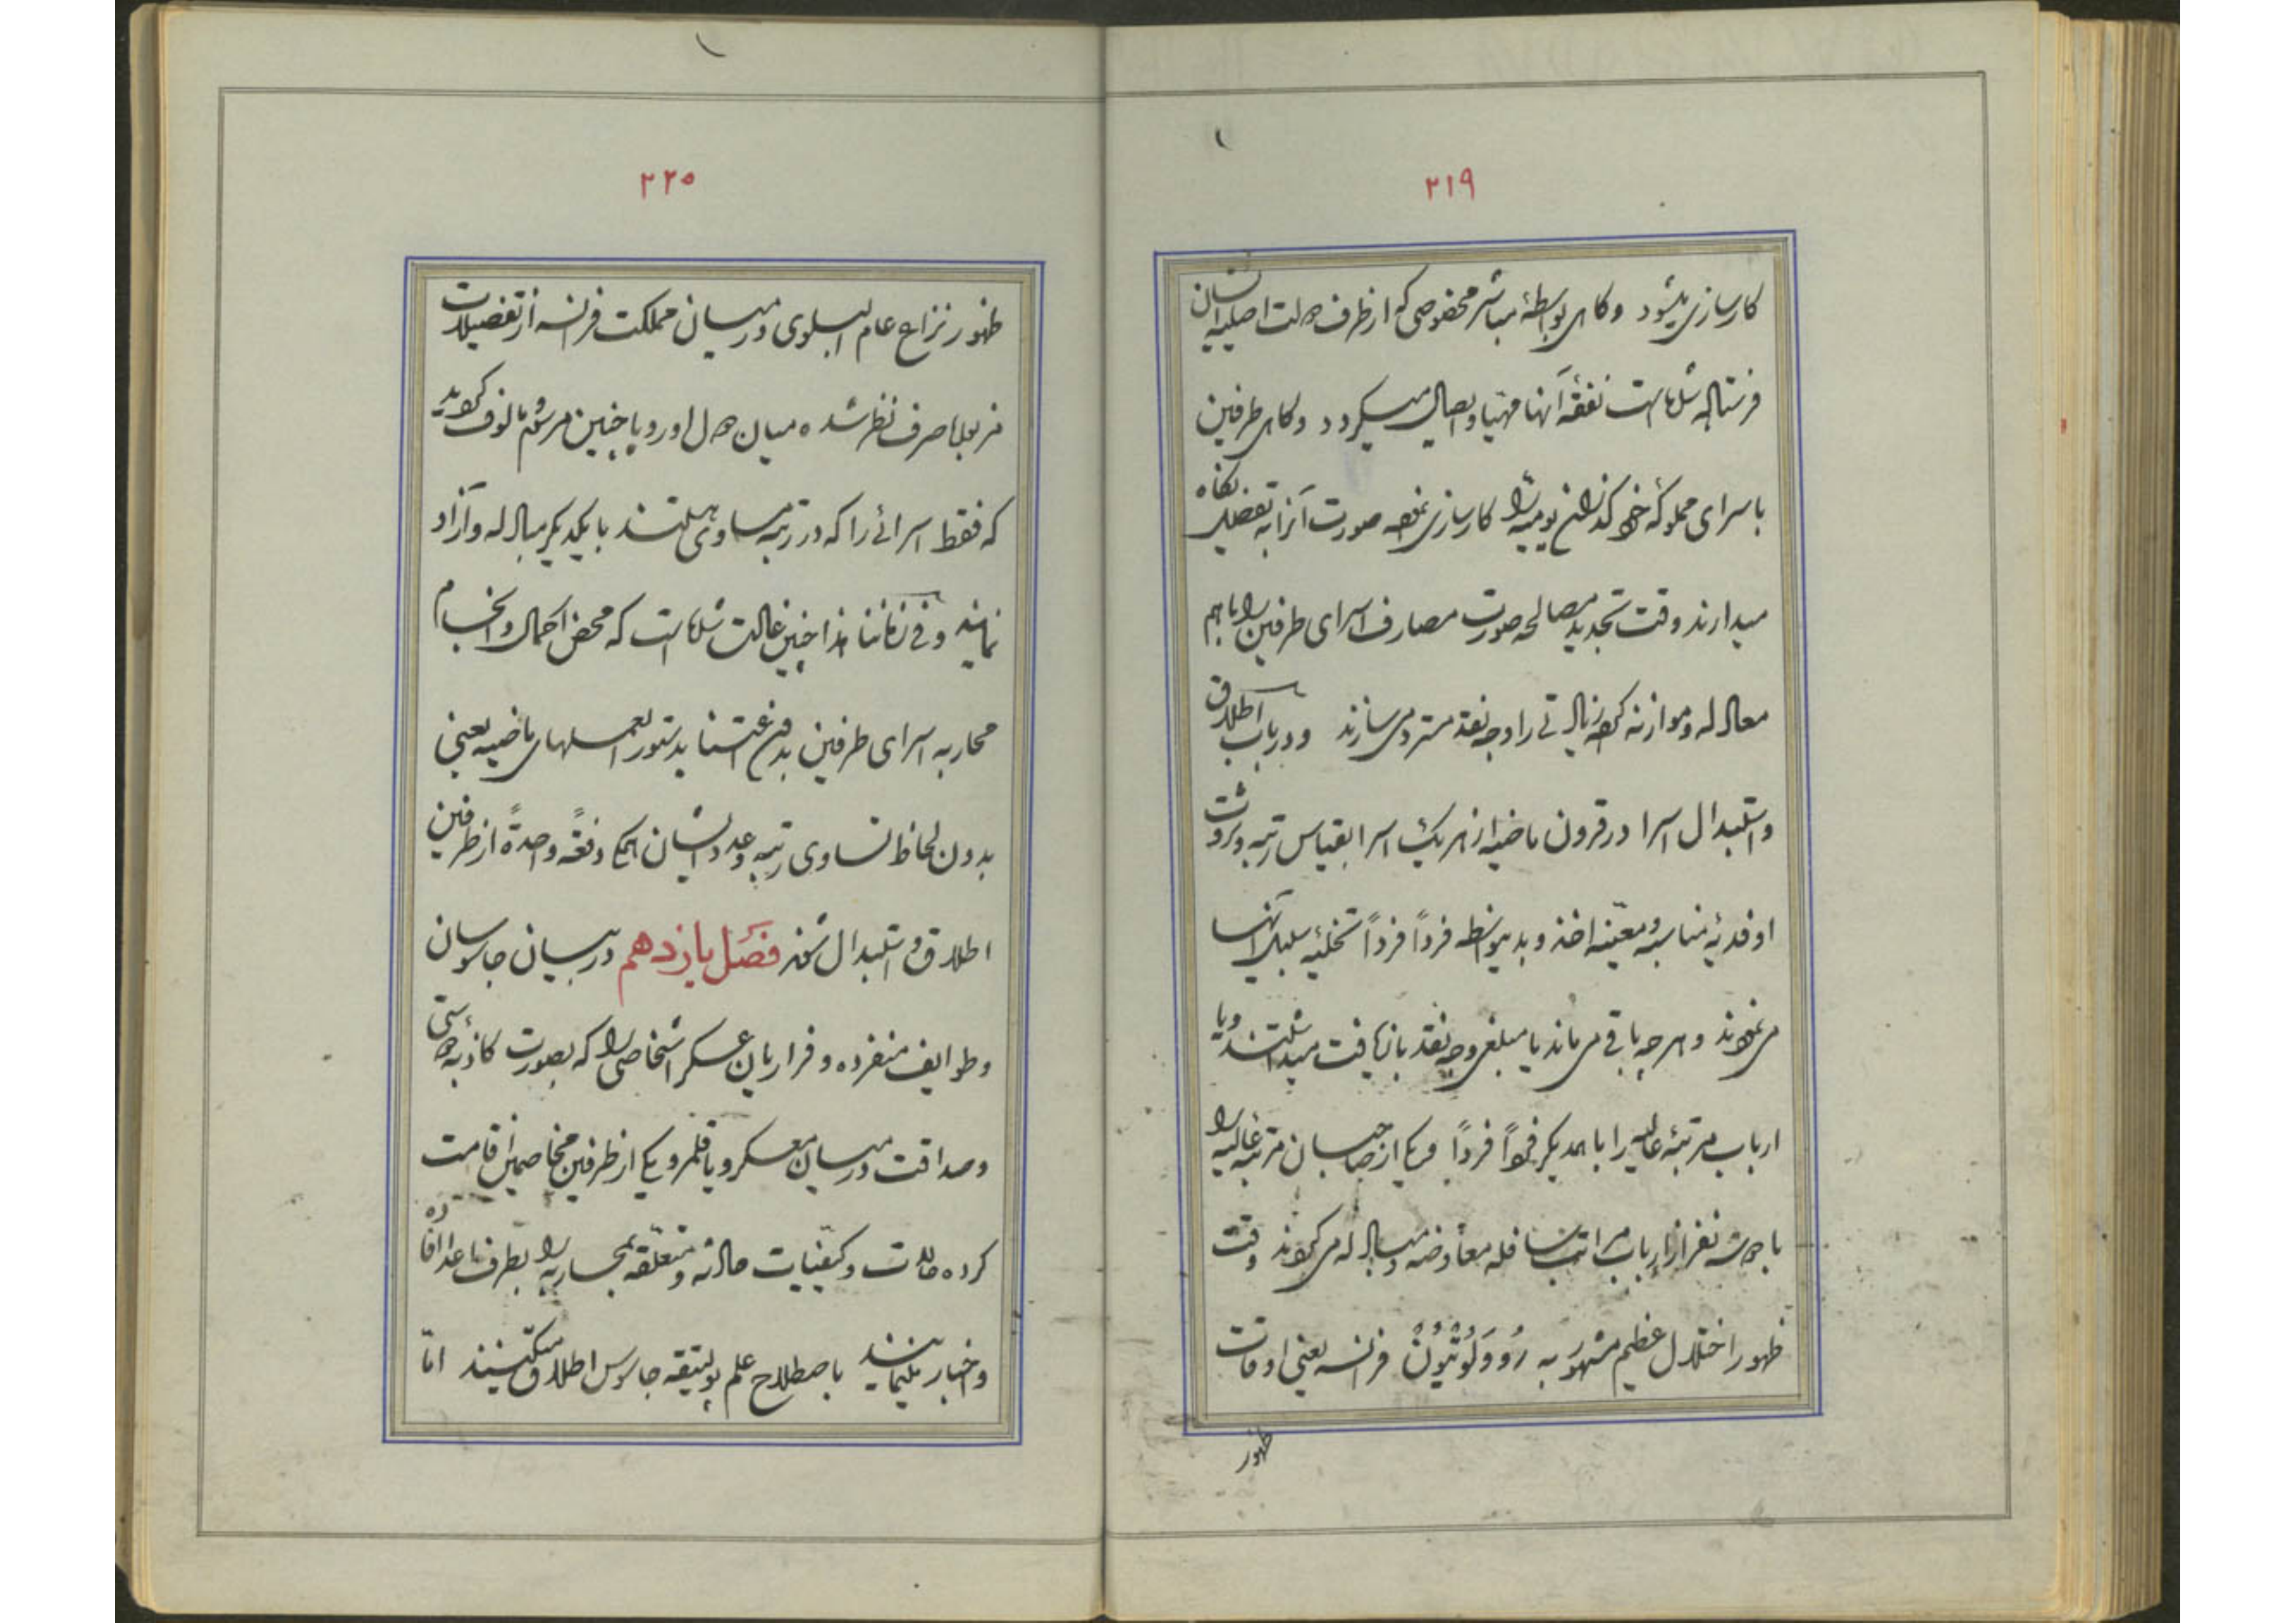 ۲۱۹
کارسازی میشود و گاهی بواسطهٔ مباشر مخصوصی که از طرف دولت اصلیهٔ ایشان
فرستاده شده است نفقهٔ آنها مهیا و ایصال میگردد و گاهی طرفین
باسرای مملوکهٔ خود گذران یومیه را کارسازی نموده صورت آنرا به تفصیل نگاه
میدارند وقت تجدید مصالحه صورت مصارف اسرای طرفین را با هم
معادله و موازنه کرده زیادتی را وجه نقد مسترد می سازند و در باب اطلاق
و استبدال اسرا در قرون ماضیه از هر یک اسرا بقیاس رتبه و ثروت
او فدیهٔ مناسبه و معینه اخذ و بدینواسطه فرداً فرداً تخلیهٔ سبیل آنها
می نمودند و هر چه باقی می ماند یا مبلغی وجه نقد بازیافت میداشتند و یا
ارباب مرتبهٔ عالیه را با همدیگر فرداً فرداً و یکی از صاحبان مرتبهٔ عالیه را
با دو سه نفر از ارباب مراتب سافله معاوضه و مبادله می کردند وقت
ظهور اختلال عظیم مشهور به رُووَلُوتْیُونْ فرانسه یعنی اوقات
ظهور
۲۲۰
ظهور نزاع عام البلوی در میان مملکت فرانسه از تفصیلات
مزبوله صرف نظر شده میان دول اوروپا چنین مرسوم و مالوف گردید
که فقط اسرائی را که در رتبه مساوی هستند با یکدیگر مبادله و آزاد
نمایند و فی زماننا هذا چنین عادت شده است که محض اکمال و انجام
محاربه اسرای طرفین بدون اعتنا بدستور العملهای ماضیه یعنی
بدون لحاظ تساوی رتبه و عدد ایشان همگی دفعةً واحدةً از طرفین
اطلاق و استبدال شوند فصل یازدهم در بیان جاسوسان
و طوایف منفرده و فراریان عسکر اشخاصی را که بصورت کاذبهٔ دوستی
و صداقت در میان معسکر و یا قلمرو یکی از طرفین مخاصمین اقامت
کرده حالات و کیفیات حادثه و متعلقه بمحاربه را بطرف اعدا افاده
و اخبار بنمایند باصطلاح علم پولیتیقه جاسوس اطلاق میکنند امّا